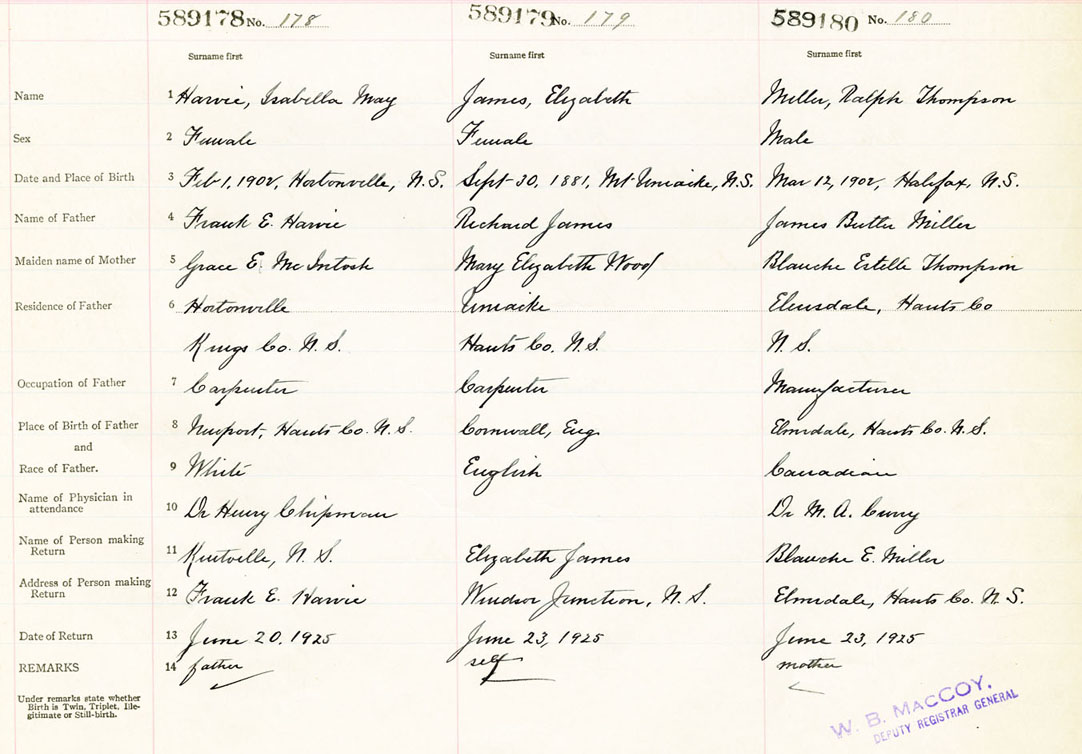 589178 No. 178 589179 No. 179 589180 No. 180
Surname first Surname first Surname first
Name 1 Harvie, Isabella May James, Elizabeth Miller, Ralph Thompson
Sex 2 Female Female Male
Date and Place of Birth 3 Feb 1, 1902, Hortonville, N.S. Sept 30, 1881, Mt. Uniacke, N.S. Mar 12, 1902, Halifax, N.S.
Name of Father 4 Frank E. Harvie Richard James James Butler Miller
Maiden name of Mother 5 Grace E. McIntosh Mary Elizabeth Wood Blanche Estelle Thompson
Residence of Father 6 Hortonville Uniacke Elmsdale, Hants Co
Kings Co. N.S. Hants Co. N.S. N.S.
Occupation of Father 7 Carpenter Carpenter Manufacturer
Place of Birth of Father 8 Newport, Hants Co. N.S. Cornwall, Eng Elmsdale, Hants Co. N.S.
and
Race of Father. 9 White English Canadian
Name of Physician in
attendance 10 Dr Henry Chipman Dr M. A. Curry
Name of Person making
Return 11 Kentville, N.S. Elizabeth James Blanche E. Miller
Address of Person making
Return 12 Frank E. Harvie Windsor Junction, N.S. Elmsdale, Hants Co. N.S.
Date of Return 13 June 20, 1925 June 23, 1925 June 23, 1925
REMARKS 14 father self mother
Under remarks state whether
Birth is Twin, Triplet, Ille-
gitimate or Still-birth.
W. B. MACCOY.
DEPUTY REGISTRAR GENERAL